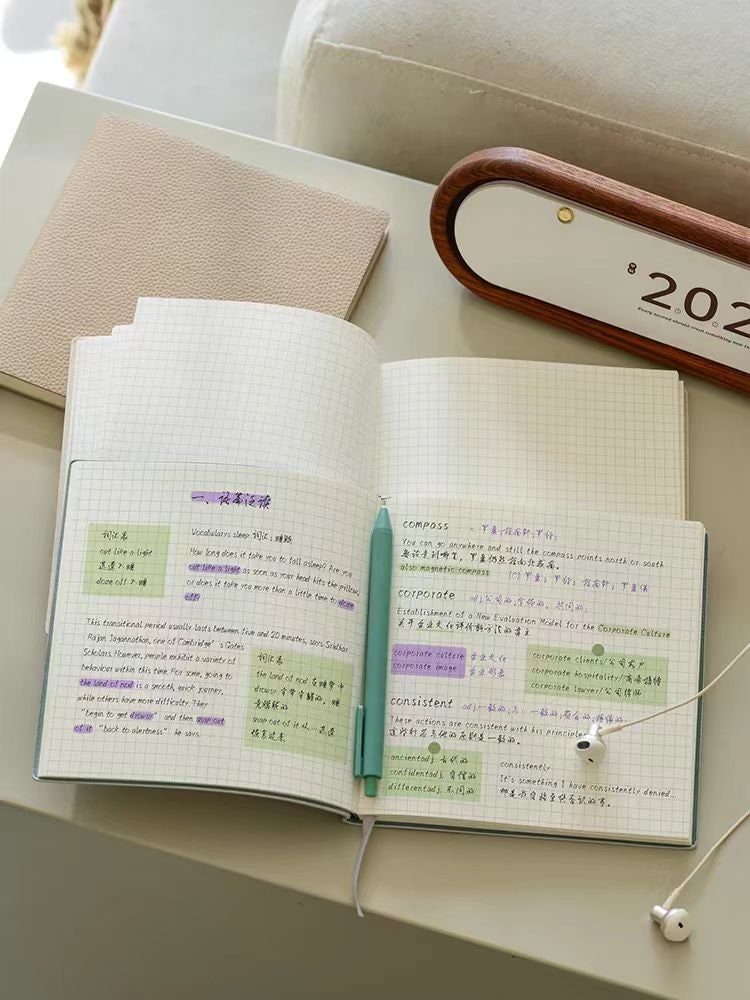 202
一、语篇泛读
词汇书
out like a light
迅速入睡
doze off 入睡
Vocabulary: sleep 词汇: 睡眠
How long does it take you to fall asleep? Are you
out like a light as soon as your head hits the pillow,
or does it take you more than a little time to doze
off?
This transitional period usually lasts between five and 20 minutes, says Sridhar
Rajan Jagannathan, one of Cambridge's Gates
Scholars. However, people exhibit a variety of
behaviour within this time. For some, going to
the land of nod is a smooth, quick journey,
while others have more difficulty. They
"begin to get drowsy" and then snap out
of it "back to alertness" he says.
词汇书
the land of nod 在睡梦中
drowsy
snap out of it 从…迅速
恢复过来
compass n.
You can go anywhere and still the compass points north or south
also magnetic compass
corporate adj.公司的;
Establishment of a New Evaluation Model for the Corporate Culture
关于企业文化评价新方法的建立
corporate culture 企业文化
corporate image 企业形象
corporate clients/公司客户
corporate hospitality/商务接待
corporate lawyer/公司律师
consistent adj.一致的;
These actions are consistent with his principles.
这些行为与他的原则是一致的。
ancientadj. 古代的
confidentadj. 自信的
differentadj. 不同的
consistently
It's something I have consistently denied...